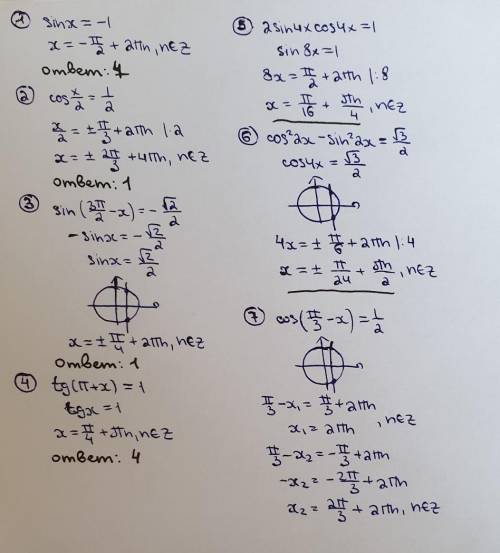 ① sinx = -1
x = -π/2 + 2πn, n∈Z
ответ: 4
② cos x/2 = 1/2
x/2 = ± π/3 + 2πn |·2
x = ± 2π/3 + 4πn, n∈Z
ответ: 1
③ sin(3π/2 - x) = -√2/2
-sinx = -√2/2
sinx = √2/2
x = ± π/4 + 2πn, n∈Z
ответ: 1
④ tg(π+x) = 1
tgx = 1
x = π/4 + πn, n∈Z
ответ: 4
⑤ 2sin4xcos4x = 1
sin8x = 1
8x = π/2 + 2πn |:8
x = π/16 + πn/4, n∈Z
⑥ cos²2x - sin²2x = √3/2
cos4x = √3/2
4x = ± π/6 + 2πn |:4
x = ± π/24 + πn/2, n∈Z
⑦ cos(π/3 - x) = 1/2
π/3 - x₁ = π/3 + 2πn
x₁ = 2πn, n∈Z
π/3 - x₂ = -π/3 + 2πn
-x₂ = -2π/3 + 2πn
x₂ = 2π/3 + 2πn, n∈Z